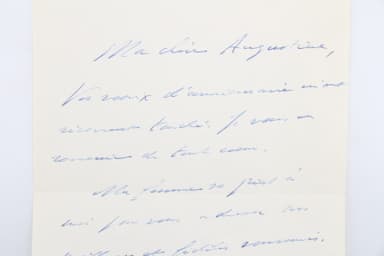 Ma chère Augustine,
Vos voeux d'anniversaire m'ont
vivement touché. Je vous en
remercie de tout coeur.
Ma femme se joint à
moi pour vous adresser nos
meilleurs et fidèles souvenirs.